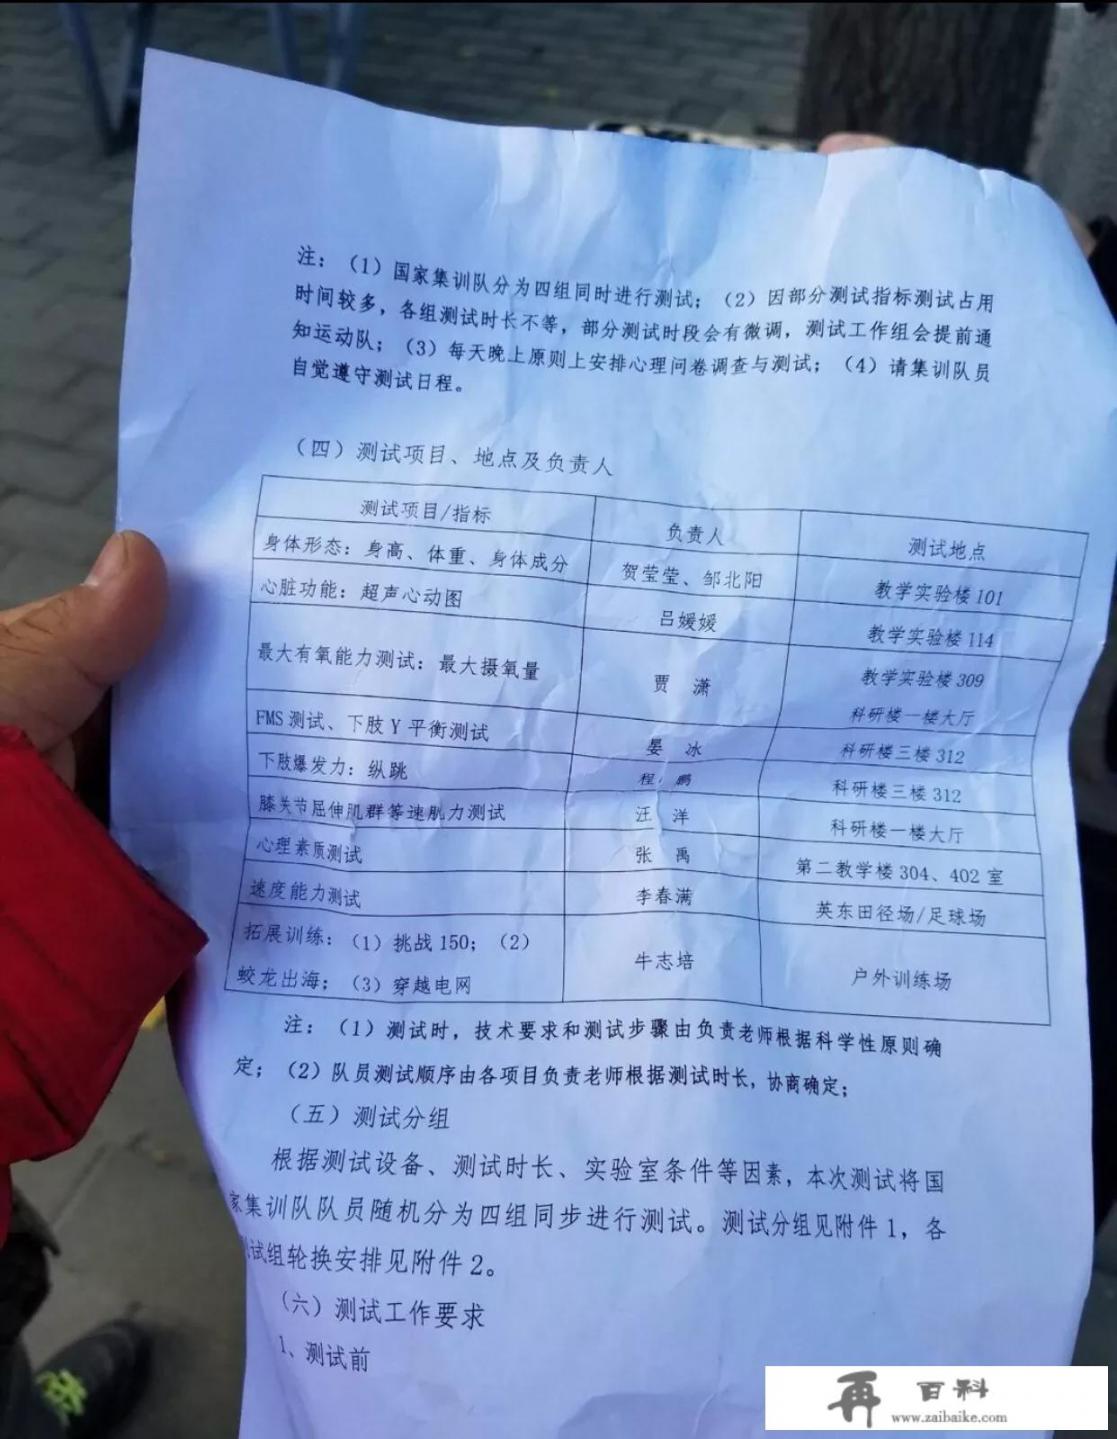 注：（1）国家集训队分为四组同时进行测试；（2）因部分测试指标测试占用
时间较多，各组测试时长不等，部分测试时段会有微调，测试工作组会提前通
知运动队；（3）每天晚上原则上安排心理问卷调查与测试；（4）请集训队员
自觉遵守测试日程。
（四）测试项目、地点及负责人
测试项目/指标 负责人 测试地点
身体形态：身高、体重、身体成分 贺莹莹、邹北阳 教学实验楼101
心脏功能：超声心动图 吕媛媛 教学实验楼114
最大有氧能力测试：最大摄氧量 贾 潇 教学实验楼309
科研楼一楼大厅
FMS测试、下肢Y平衡测试 晏 冰 科研楼三楼312
下肢爆发力：纵跳 程 鹏 科研楼三楼312
膝关节屈伸肌群等速肌力测试 汪 洋 科研楼一楼大厅
心理素质测试 张 禹 第二教学楼304、402室
速度能力测试 李春满 英东田径场/足球场
拓展训练：（1）挑战150；（2）
蛟龙出海；（3）穿越电网 牛志培 户外训练场
注：（1）测试时，技术要求和测试步骤由负责老师根据科学性原则确
定；（2）队员测试顺序由各项目负责老师根据测试时长，协商确定；
（五）测试分组
根据测试设备、测试时长、实验室条件等因素，本次测试将国
家集训队队员随机分为四组同步进行测试。测试分组见附件1，各
测试组轮换安排见附件2。
（六）测试工作要求
1、测试前
再 百科
www.zaibaike.com